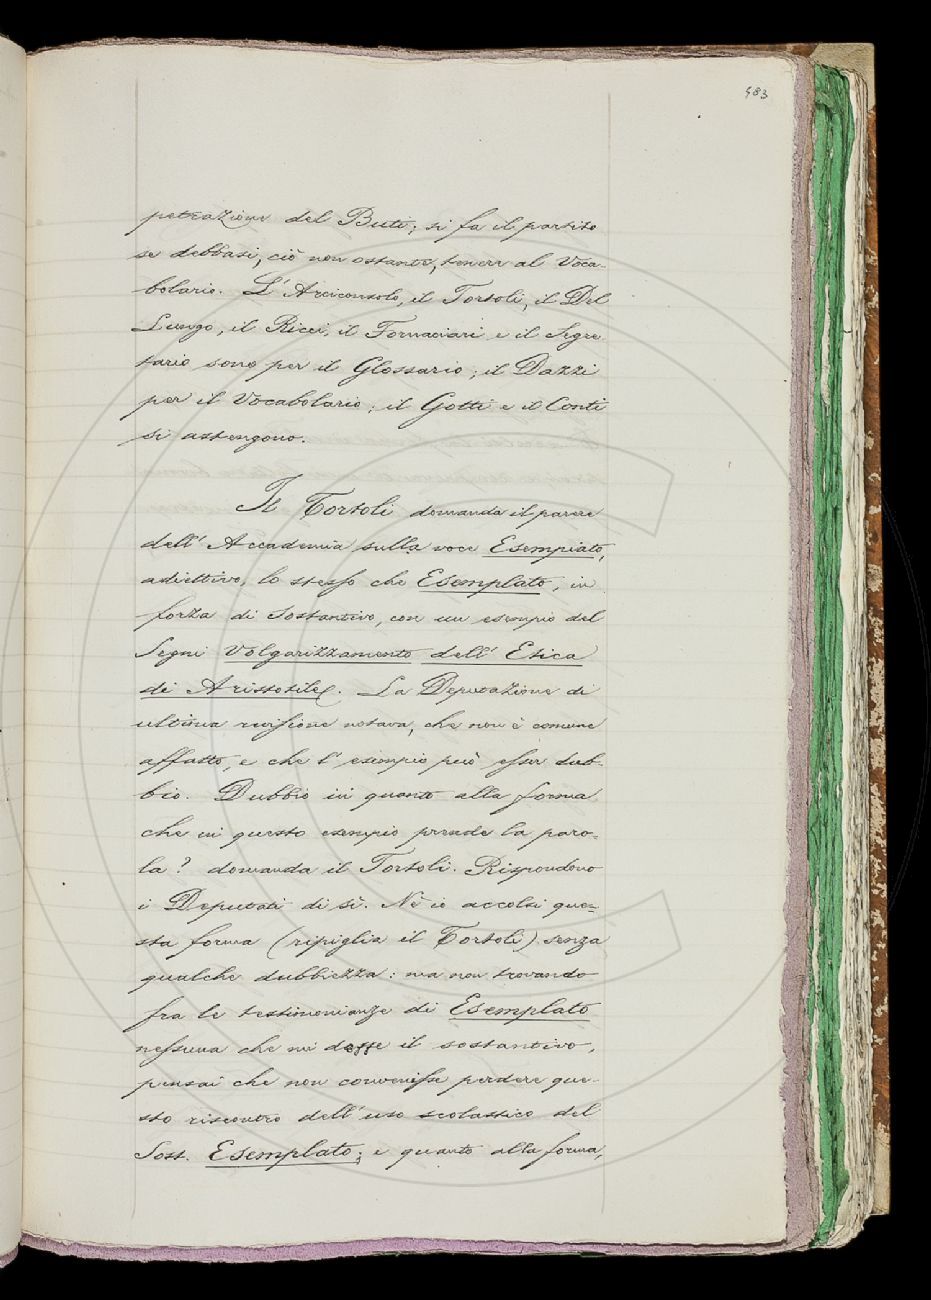 483
petrazione del Buti; si fa il partito
se debbasi, ciò non ostante, tenere al Voca-
bolario. L'Arciconsolo, il Tortoli, il Del
Lungo, il Ricci, il Fornaciari e il Segre-
tario sono per il Glossario; il Dazzi
per il Vocabolario; il Gotti e il Conti
si astengono.
Il Tortoli domanda il parere
dell'Accademia sulla voce Esempiato,
adiettivo, lo stesso che Esemplato, in
forza di Sostantivo, con un esempio del
Segni Volgarizzamento dell'Etica
di Aristotile. La Deputazione di
ultima revisione notava, che non è comune
affatto, e che l'esempio può esser dub-
bio. Dubbio in quanto alla forma
che in questo esempio prende la paro-
la? domanda il Tortoli. Rispondono
i Deputati di sì. Nè io accolsi que-
sta forma (ripiglia il Tortoli) senza
qualche dubbiezza: ma non trovando
fra le testimonianze di Esemplato
nessuna che mi desse il sostantivo,
pensai che non convenisse perdere que-
sto riscontro dell'uso scolastico del
Sost. Esemplato; e quanto alla forma,